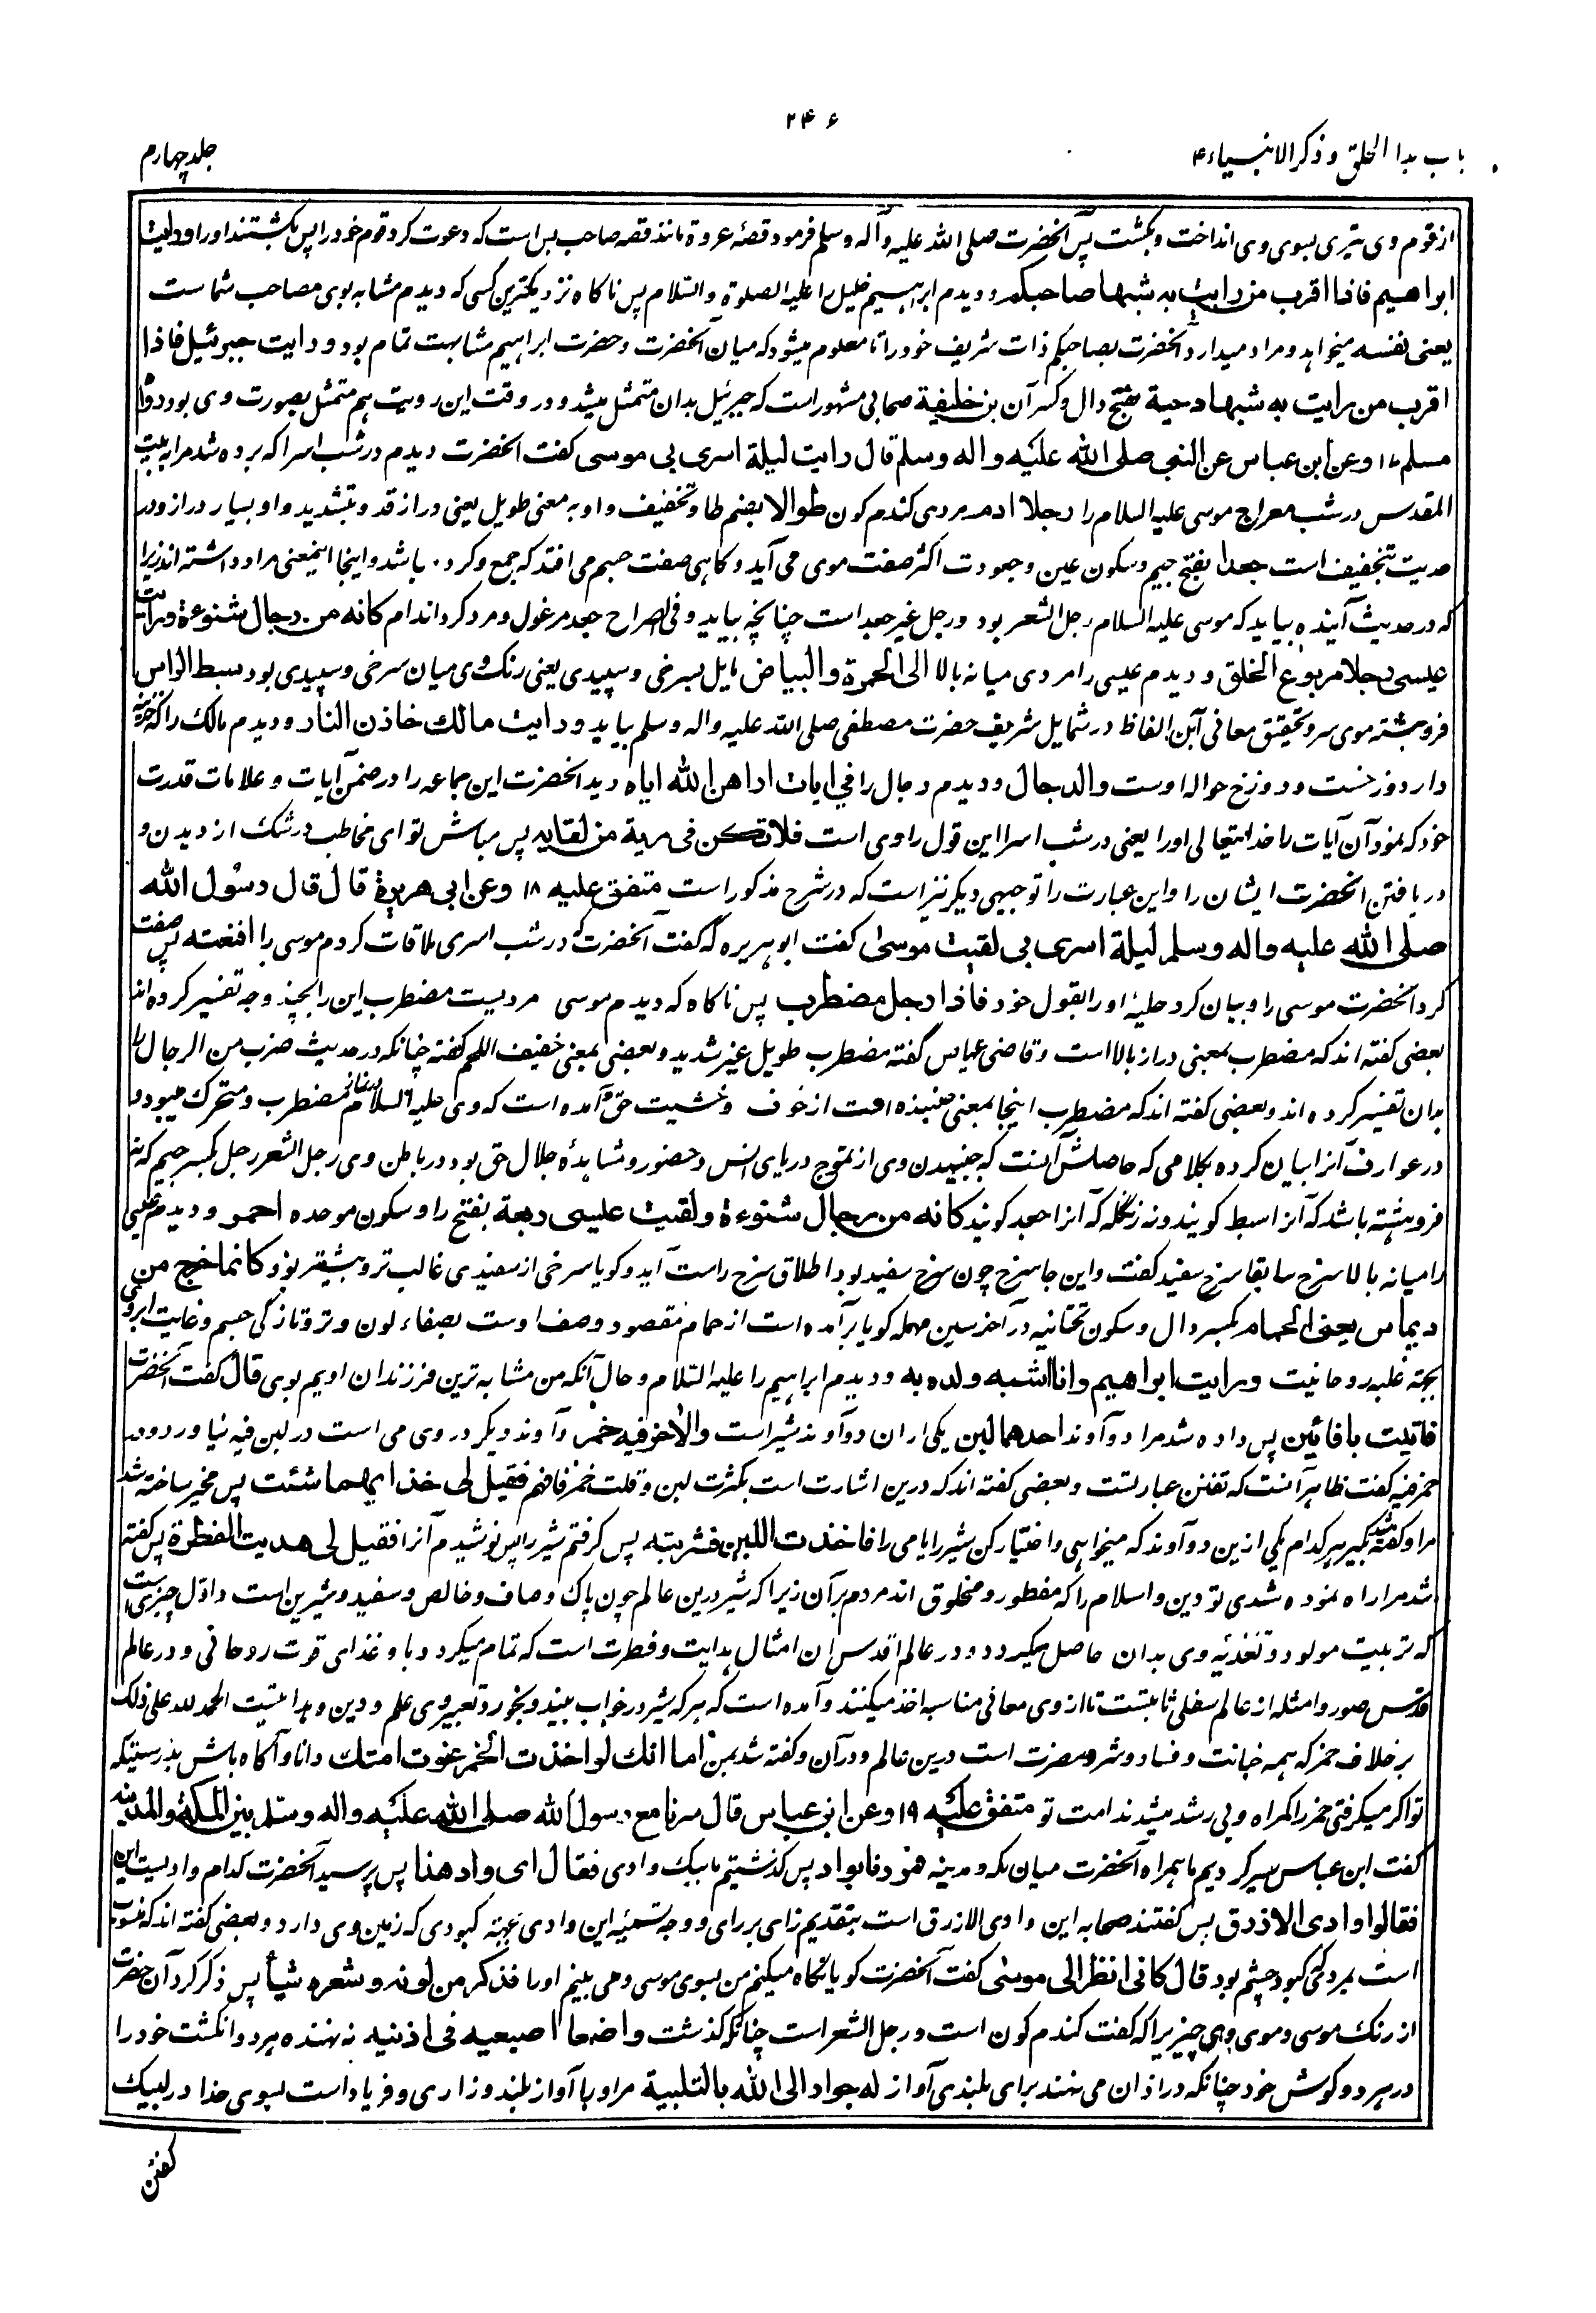 ۲۴۶
باب بدا الخلق و ذکر الانبیاء ۴
جلد چهارم
از قوم وی تیری بسوی وی انداخت و بکشت پس آنحضرت صلی الله علیه وآله وسلم فرمود قصهٔ عروة مانند قصه صاحب یس است که دعوت کرد قوم خود را پس بکشتند او را و رایت
ابراهیم فاذا اقرب من رایت به شبها صاحبکم و دیدم ابراهیم خلیل را علیه الصلوة والسلام پس ناکاه نزدیکترین کسی که دیدم مشابه بوی مصاحب شما ست
یعنی نفسه میخواهد و مراد میدارد آنحضرت بصاحبکم ذات شریف خود را تا معلوم میشود که میان آنحضرت و حضرت ابراهیم مشابهت تمام بود و رایت جبرئیل فاذا
اقرب من رایت به شبها دحیة بفتح دال و کسر آن بن خلیفة صحابی مشهور است که جبرئیل بدان متمثل میشد و در وقت این رویت هم متمثل بصورت وی بود رواه
مسلم ۱۷ وعن ابن عباس عن النبی صلی الله علیه واله وسلم قال رایت لیلة اسری بی موسی کفت انحضرت دیدم در شب اسرا که برده شد مرا به بیت
المقدس در شب معراج موسی علیه السلام را رجلا ادم مردی کندم کون طوالا بضم طا و تخفیف واو به معنی طویل یعنی دراز قد و بتشدید واو بسیار دراز و در
حدیت بتخفیف است جعدا بفتح جیم و سکون عین و جعودت اکثر صفت موی می آید و کاهی صفت جسم می افتد که جمع و کرد باشد و اینجا اینمعنی مراد داشته اند زیرا
که در حدیث آینده بیاید که موسی علیه السلام رجل الشعر بود و رجل غیر جعد است چنانچه بیاید و فی الصراح جعد مرغول و مرد کرد اندام کانه من رجال شنوءة و رایت
عیسی رجلا مربوع الخلق و دیدم عیسی را مردی میانه بالا الی الحمرة والبیاض مایل بسرخی و سپیدی یعنی رنک وی میان سرخی و سپیدی بود سبط الراس
فروهشته موی سر و تحقیق معانی این الفاظ در شمایل شریف حضرت مصطفی صلی الله علیه واله وسلم بیاید و رایت مالک خازن النار و دیدم مالک را که خزینه
دار دوزخست و دوزخ حواله اوست والدجال و دیدم دجال را فی ایات اراهن الله ایاه دید انحضرت این جماعه را در ضمن آیات و علامات قدرت
خود که بنمود آن آیات را خدایتعالی او را یعنی در شب اسرا این قول راوی است فلا تکن فی مریة من لقایه پس مباش تو ای مخاطب در شک از دیدن و
دریافتن انحضرت ایشان را و این عبارت را توجیهی دیکر نیز است که در شرح مذکور است متفق علیه ۱۸ وعن ابی هریرة قال قال رسول الله
صلی الله علیه واله وسلم لیلة اسری بی لقیت موسی کفت ابو هریره که کفت آنحضرت که در شب اسری ملاقات کردم موسی را فنعته پس صفت
کرد انحضرت موسی را و بیان کرد حلیهٔ او را بقول خود فاذا رجل مضطرب پس ناکاه که دیدم موسی مردیست مضطرب این را بچند وجه تفسیر کرده اند
بعضی کفته اند که مضطرب بمعنی دراز بالا است و قاضی عیاض گفته مضطرب طویل غیر شدید و بعضی بمعنی خفیف اللحم کفته چنانکه در حدیث ضرب من الرجال را
بدان تفسیر کرده اند و بعضی کفته اند که مضطرب اینجا بمعنی جنبنده است از خوف و خشیت حق و آمده است که وی علیه السلام در نماز مضطرب و متحرک میبود و
در عوارف آنرا بیان کرده بکلامی که حاصلش آنست که جنبیدن وی از تموج دریای انس و حضور و مشاهدهٔ جلال حق بود در باطن وی رجل الشعر رجل بکسر جیم که نه
فروهشته باشد که آنرا سبط کویند و نه زنگله که آنرا جعد کویند کانه من رجال شنوءة ولقیت عیسی ربعة بفتح را و سکون موحده احمر و دیدم عیسی
را میانه بالا سرخ سابقا سرخ سفید کفت و این جا سرخ چون سرخ سفید بود اطلاق سرخ راست آید و کویا سرخی از سفیدی غالب تر و بیشتر بود کانما خرج من
دیماس یعنی الحمام بکسر دال و سکون تحتانیه در آخر سین مهمله کویا برآمده است از حمام مقصود وصف اوست بصفاء لون و تر و تازکی جسم و غایت ابروئی
بجته غلبه روحانیت و رایت ابراهیم وانا اشبه ولده به و دیدم ابراهیم را علیه السلام و حال آنکه من مشابه ترین فرزندان اویم بوی قال کفت آنحضرت
فاتیت باناءین پس داده شد مرا دو آوند احدهما لبن یکی از ان دو آوند شیر است والاخر فیه خمر و آوند دیکر در وی می است در لبن فیه نیاورد و در
خمر فیه کفت ظاهر آنست که تفنن عبارتست و بعضی کفته اند که درین اشارت است بکثرت لبن و قلت خمر فافهم فقیل لی خذ ایهما شئت پس مخیر ساخته شد
مرا و کفته شد بکیر هر کدام یکی ازین دو آوند که میخواهی و اختیار کن شیر را یا می را فاخذت اللبن فشربته پس کرفتم شیر را پس نوشیدم آنرا فقیل لی هدیت الفطرة پس کفته
شد مرا راه نموده شدی تو دین و اسلام را که مفطور و مخلوق اند مردم بر آن زیرا که شیر درین عالم چون پاک و صاف و خالص و سفید و شیرین است و اول چیزی است
که تربیت مولود و تغذیه وی بدان حاصل میکیرد و در عالم اقدس ان امثال هدایت و فطرت است که تمام میکردد با و غذای قوت روحانی و در عالم
قدس صور و امثله از عالم سفلی ثابتست تا از وی معانی مناسبه اخذ میکنند و آمده است که هر که شیر در خواب بیند و بخورد تعبیر وی علم و دین و هدایتست الحمد لله علی ذلک
بر خلاف خمر که همه خیانت و فساد و شر و مضرت است درین عالم و در آن و کفته شد بمن اما انک لو اخذت الخمر غوت امتک دانا و آکاه باش بدرستیکه
تو اکر میکرفتی خمر را کمراه و بی رشد میشدند امت تو متفق علیه ۱۹ وعن ابن عباس قال سرنا مع رسول الله صلی الله علیه واله وسلم بین المکة والمدینه
کفت ابن عباس سیر کردیم ما همراه آنحضرت میان مکه و مدینه فمررنا بواد پس کذشتیم ما بیک وادی فقال ای واد هذا پس پرسید آنحضرت کدام وادیست این
فقالوا وادی الازرق پس کفتند صحابه این وادی الازرق است بتقدیم زای بر رای و وجه تسمیه این وادی بجته کبودی که زمین وی دارد و بعضی کفته اند که منسوب
است بمردی کبود چشم بود قال کانی انظر الی موسی کفت آنحضرت کویا نکاه میکنم من بسوی موسی و می بینم او را فذکر من لونه وشعره شیأ پس ذکر کرد آن حضرت
از رنک موسی و موی وی چیزیرا که کفت کندم کون است و رجل الشعر است چنانکه کذشت واضعا اصبعیه فی اذنیه نهنده هر دو انکشت خود را
در هر دو کوش خود چنانکه در اذان می نهند برای بلندی آواز له جوار الی الله بالتلبیة مر او را آواز بلند و زاری و فریاد است بسوی خدا در لبیک
کفتن